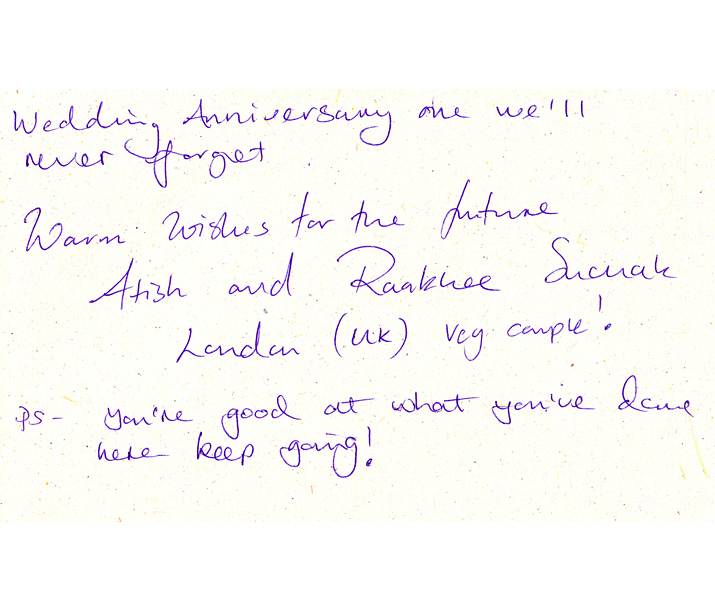 Wedding Anniversary one we'll
never forget
Warm Wishes for the future
Atish and Raakhee
London (UK) Veg couple!
PS- you're good at what you've done
here keep going!